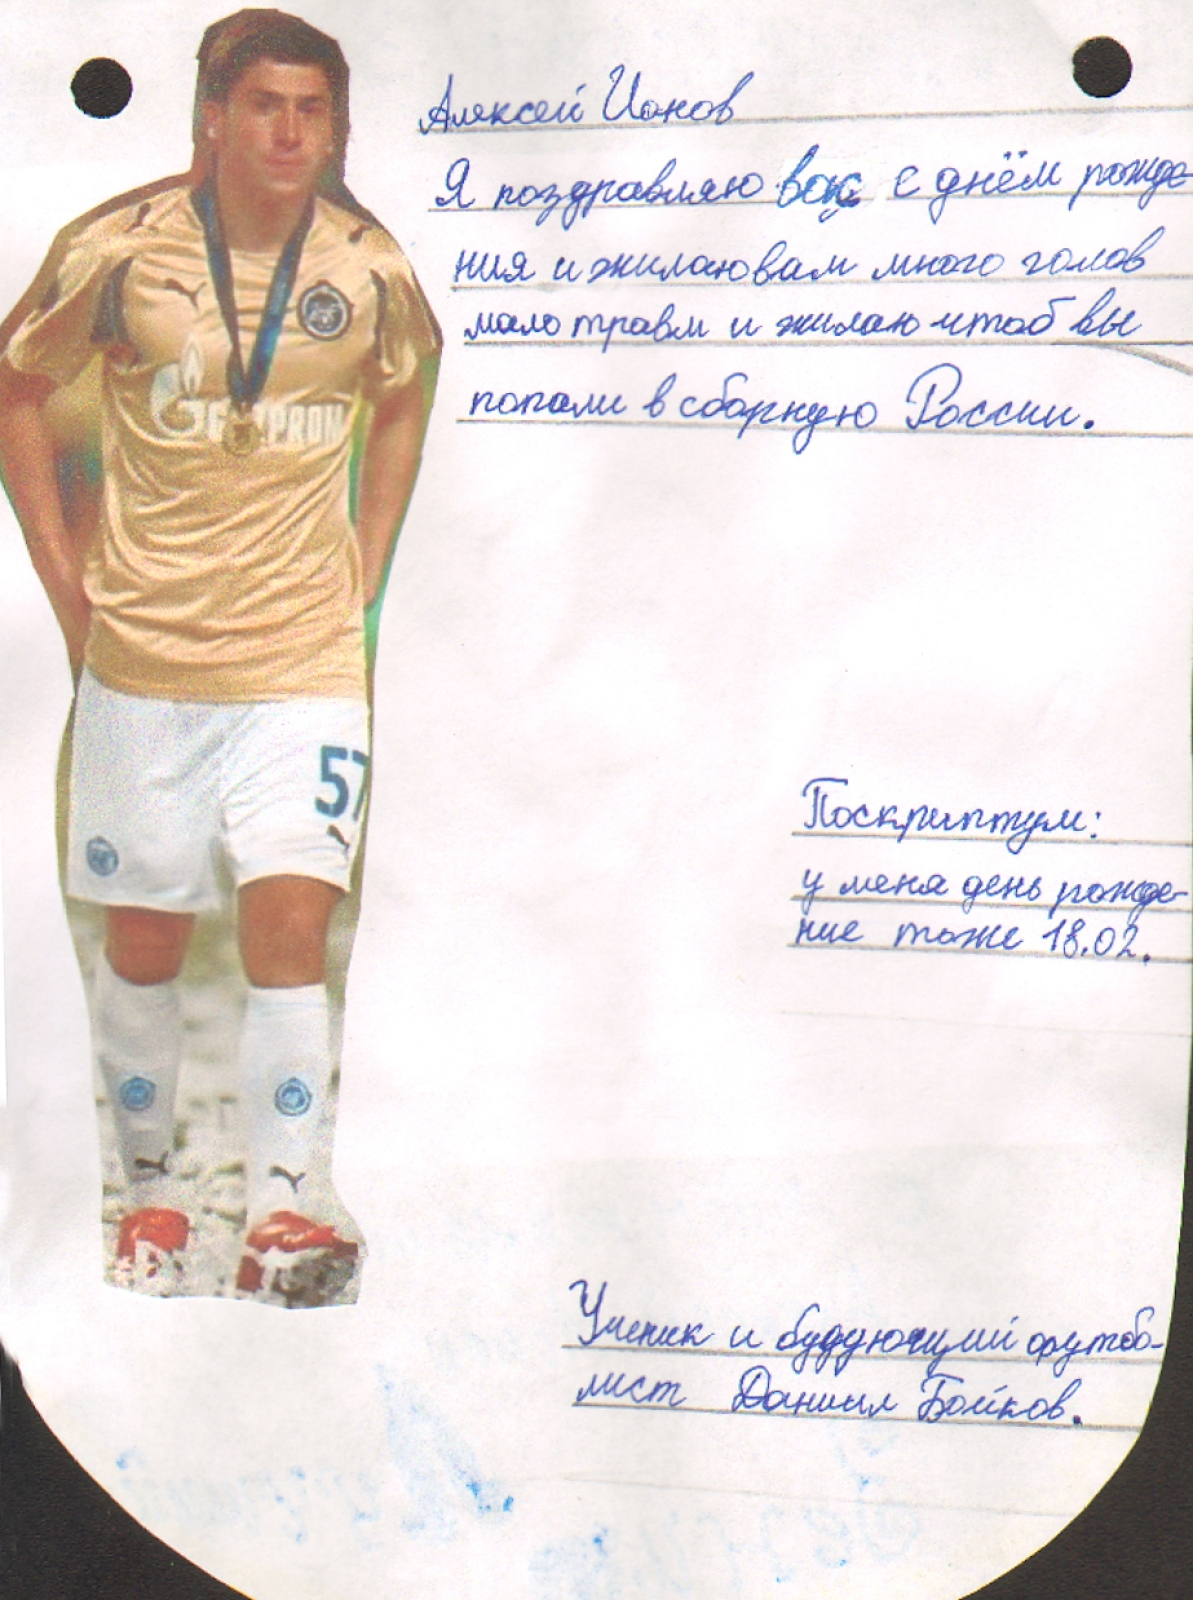 Алексей Ионов
Я поздравляю вас с днём рожде-
ния и жилаю вам много голов
мало травм и жилаю чтоб вы
попали в сборную России.
GAZPROM
57
Поскриптум:
у меня день рожде-
ние тоже 18.02.
Ученик и будующий футбо-
лист Даниил Бойков.